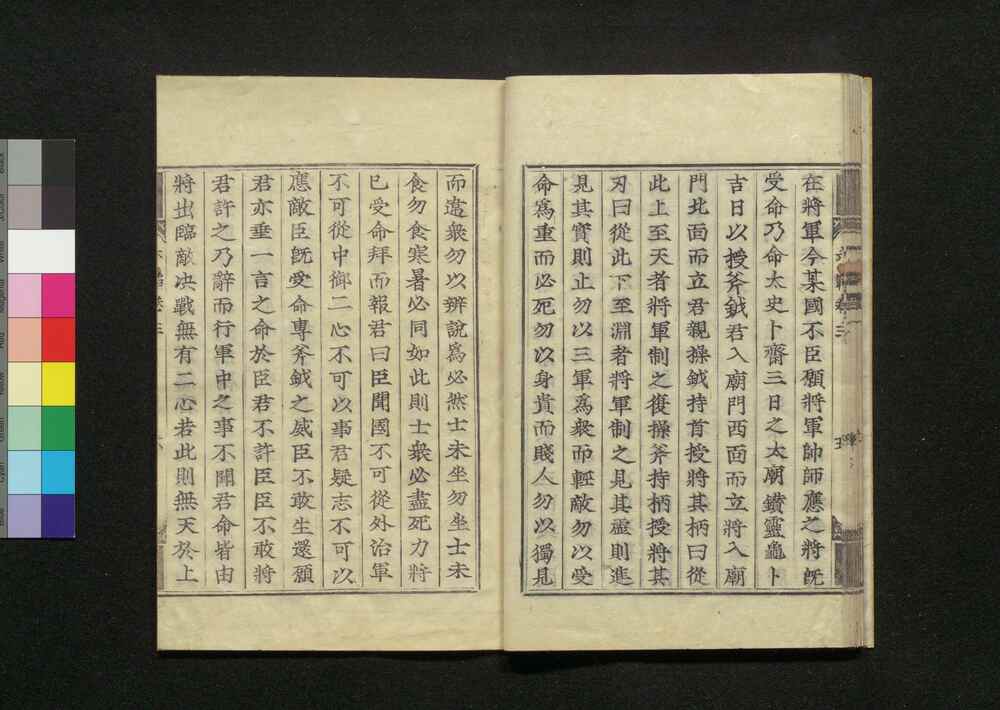 在將軍今某國不臣願將軍帥師應之將既
受命乃命太史卜齋三日之太廟鑽靈龜卜
吉日以授斧鉞君入廟門西面而立將入廟
門北面而立君親操鉞持首授將其柄曰從
此上至天者將軍制之復操斧持柄授將其
刃曰從此下至淵者將軍制之見其虛則進
見其實則止勿以三軍爲衆而輕敵勿以受
命爲重而必死勿以身貴而賤人勿以獨見
而違衆勿以辯說爲必然士未坐勿坐士未
食勿食寒暑必同如此則士衆必盡死力將
已受命拜而報君曰臣聞國不可從外治軍
不可從中御二心不可以事君疑志不可以
應敵臣既受命專斧鉞之威臣不敢生還願
君亦垂一言之命於臣君不許臣臣不敢將
君許之乃辭而行軍中之事不聞君命皆由
將出臨敵决戰無有二心若此則無天於上